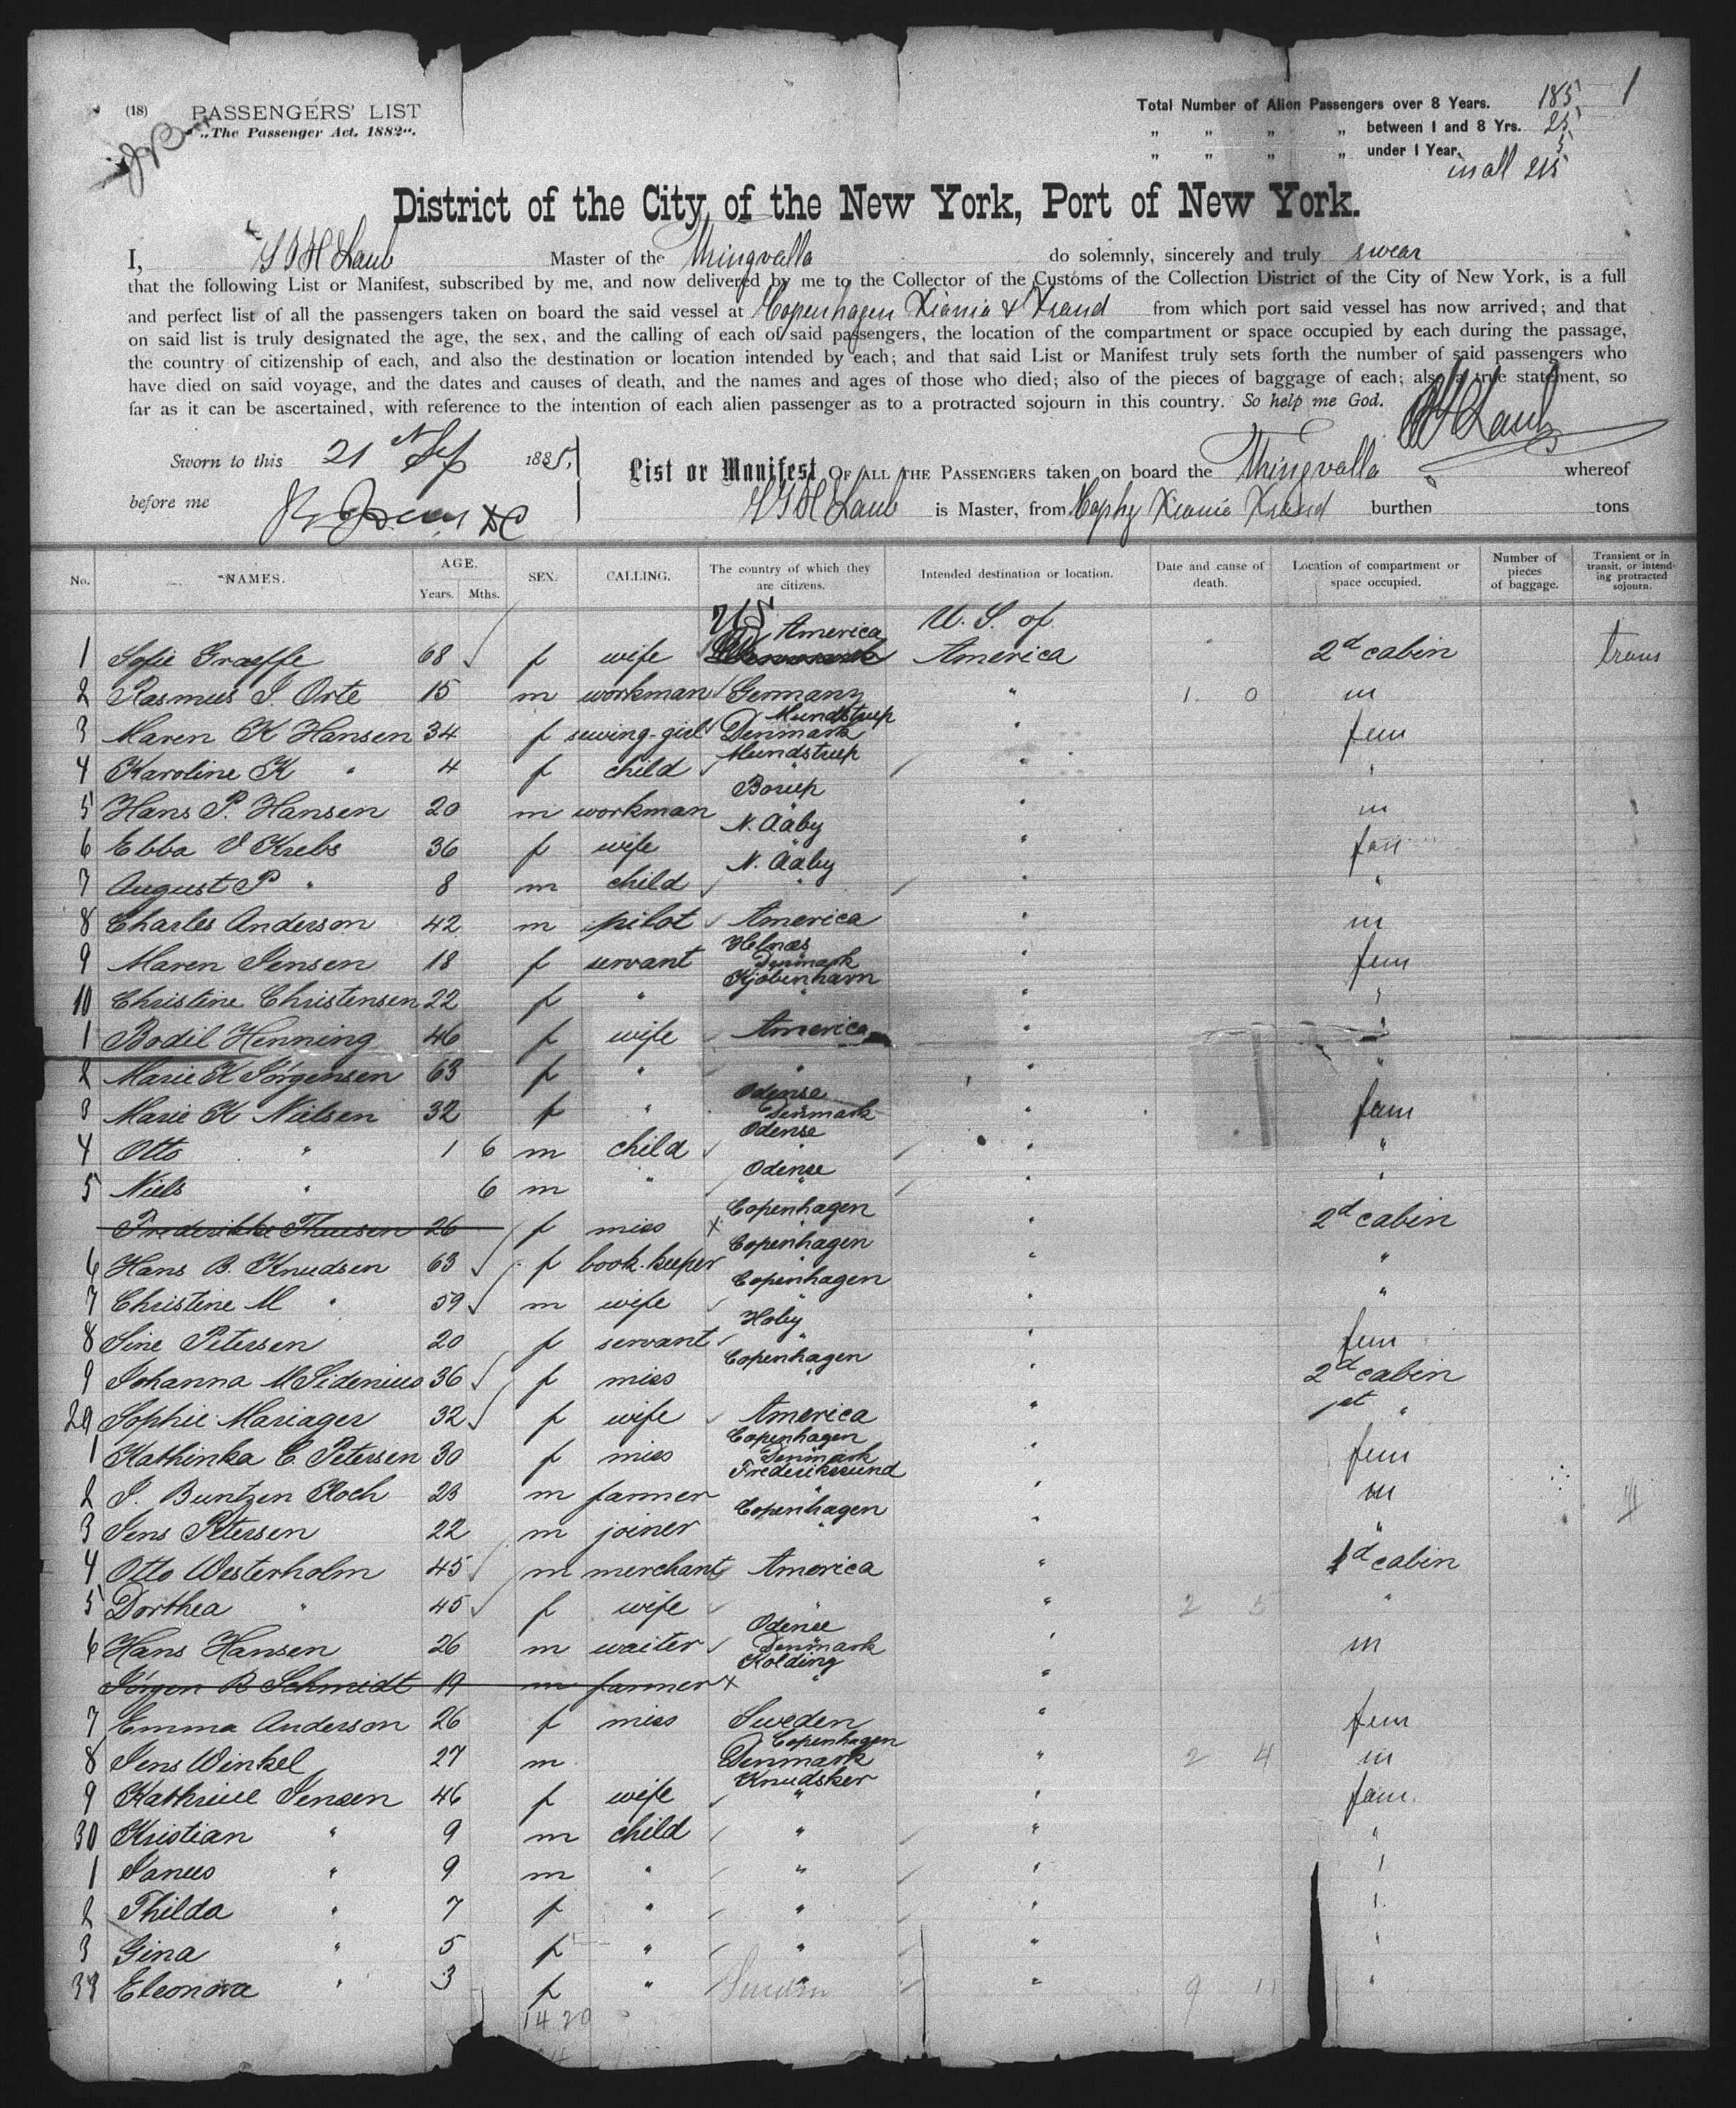 (18) PASSENGERS' LIST
„The Passenger Act, 1882“.
Total Number of Alien Passengers over 8 Years. 185 1
„ „ „ „ between 1 and 8 Yrs. 25
„ „ „ „ under 1 Year. 5
in all 215
District of the City, of the New York, Port of New York.
I, Laub Master of the Thingvalla do solemnly, sincerely and truly swear
that the following List or Manifest, subscribed by me, and now delivered by me to the Collector of the Customs of the Collection District of the City of New York, is a full
and perfect list of all the passengers taken on board the said vessel at Copenhagen Xiania & Xsand from which port said vessel has now arrived; and that
on said list is truly designated the age, the sex, and the calling of each of said passengers, the location of the compartment or space occupied by each during the passage,
the country of citizenship of each, and also the destination or location intended by each; and that said List or Manifest truly sets forth the number of said passengers who
have died on said voyage, and the dates and causes of death, and the names and ages of those who died; also of the pieces of baggage of each; also a true statement, so
far as it can be ascertained, with reference to the intention of each alien passenger as to a protracted sojourn in this country. So help me God. Laub
Sworn to this 21 Sep 1885,
before me
List or Manifest OF ALL THE PASSENGERS taken on board the Thingvalla whereof
Laub is Master, from Cophg Xiania Xsand burthen tons
No. NAMES. AGE. Years. Mths. SEX. CALLING. The country of which they are citizens. Intended destination or location. Date and cause of death. Location of compartment or space occupied. Number of pieces of baggage. Transient or in transit, or intending protracted sojourn.
1 Sofie Graeffe 68 f wife US America U. S. of America 2d cabin trans
2 Rasmus J. Orte 15 m workman Germany " 1 0 m
3 Maren K Hansen 34 f sewing-girl Mundstrup Denmark " fem
4 Karoline K " 4 f child Mundstrup " " "
5 Hans P. Hansen 20 m workman Borup " " m
6 Ebba V Krebs 36 f wife N. Aaby " " fam
7 August P " 8 m child N. Aaby " " "
8 Charles Anderson 42 m pilot America " m
9 Maren Jensen 18 f servant Helnæs Denmark " fem
10 Christine Christensen 22 f " Kjøbenhavn " " "
1 Bodil Henning 46 f wife America " "
2 Marie K Jørgensen 63 f " " " "
3 Marie K Nielsen 32 f " Odense Denmark " fam
4 Otto " 1 6 m child Odense " " "
5 Niels " 6 m " Odense " " "
Frederikke Thuesen 26 f miss x Copenhagen " " 2d cabin
6 Hans B. Knudsen 63 f book-keeper Copenhagen " " "
7 Christine M " 59 m wife Copenhagen " " "
8 Sine Petersen 20 f servant Hoby " " fem
9 Johanna M Sidenius 36 f miss Copenhagen " " 2d cabin
20 Sophie Mariager 32 f wife America " 1st "
1 Kathinka C. Petersen 30 f miss Copenhagen Denmark " fem
2 J. Buntzen Koch 23 m farmer Frederikssund " " m
3 Jens Petersen 22 m joiner Copenhagen " " "
4 Otto Westerholm 45 m merchant America " 1d cabin
5 Dorthea " 45 f wife " " 2 5 "
6 Hans Hansen 26 m waiter Odense Denmark " m
Jørgen R Schmidt 19 m farmer x Kolding " "
7 Emma Anderson 26 f miss Sweden " fem
8 Jens Winkel 27 m Copenhagen Denmark " 2 4 m
9 Kathrine Jensen 46 f wife Knudsker " " fam
30 Kristian " 9 m child " " "
1 Janus " 9 m " " " "
2 Thilda " 7 f " " " "
3 Gina " 5 f " " " "
34 Eleonora " 3 f " " " 9 11 "
14 20